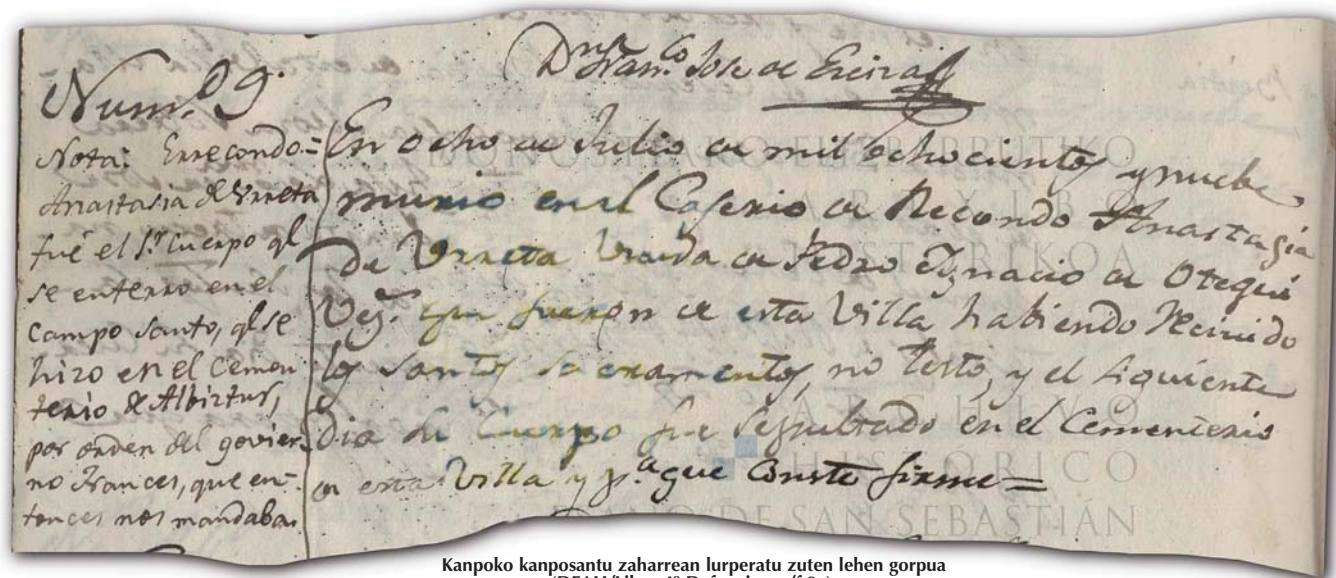 Dn Franco Jose de
Numo 9.
Nota: Errecondo =
Anastasia de Urreta
fué el 1r Cuerpo ql
se enterro en el
Campo Santo, ql se
hizo en el Cemen
terio de Albiztur,
por orden del govier-
no Frances, que en-
tonces nos mandaba.
En ocho de Julio de mil ochocientos y nuebe
murio en el Caserio de Recondo Anastasia
de Urreta Viuda de Pedro Ignacio de Otegui
Vezs que fueron de esta Villa habiendo Recivido
los Santos Sacramentos, no testó, y el siguiente
dia su Cuerpo fue sepultado en el Cementerio
de esta Villa y pa que Conste firme =
DONOSTIAKO ELIZBARRUTIKO
ARTXIBO
HISTORIKOA
ARCHIVO
HISTORICO
DIOCESANO DE SAN SEBASTIÁN
Kanpoko kanposantu zaharrean lurperatu zuten lehen gorpua